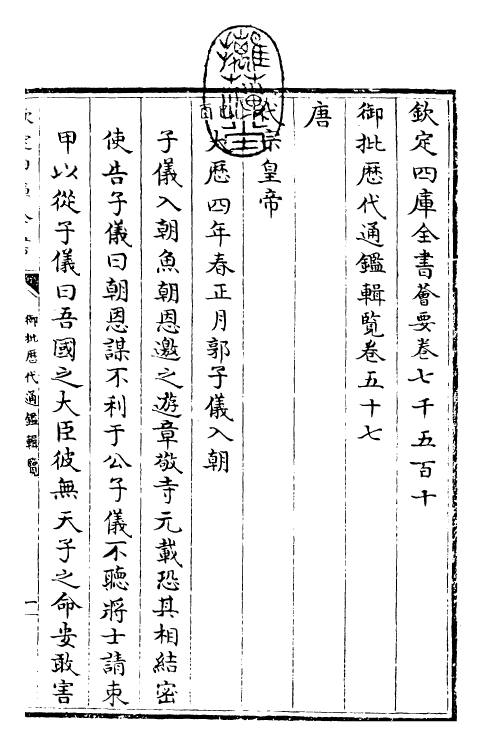 欽定四庫全書薈要卷七千五百十
御批歷代通鑑輯覽卷五十七
唐
代宗皇帝
大歷四年春正月郭子儀入朝
子儀入朝魚朝恩邀之遊章敬寺元載恐其相結密
使告子儀曰朝恩謀不利于公子儀不聽將士請束
甲以從子儀曰吾國之大臣彼無天子之命安敢害
御批歷代通鑑輯覽
一